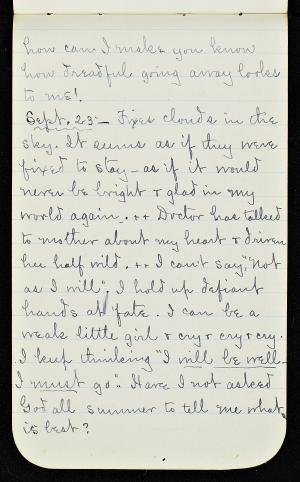 how can I make you know
how dreadful going away looks
to me!
Sept. 23 – Fixed clouds in the
sky. It seems as if they were
fixed to stay – as if it would
never be bright & glad in my
world again. ++ Doctor has talked
to mother about my heart & driven
her half wild. ++ I can't say, "Not
as I will". I hold up defiant
hands at fate. I can be a
weak little girl & cry & cry & cry.
I keep thinking "I will be well –
I must go". Have I not asked
God all summer to tell me what
is best?